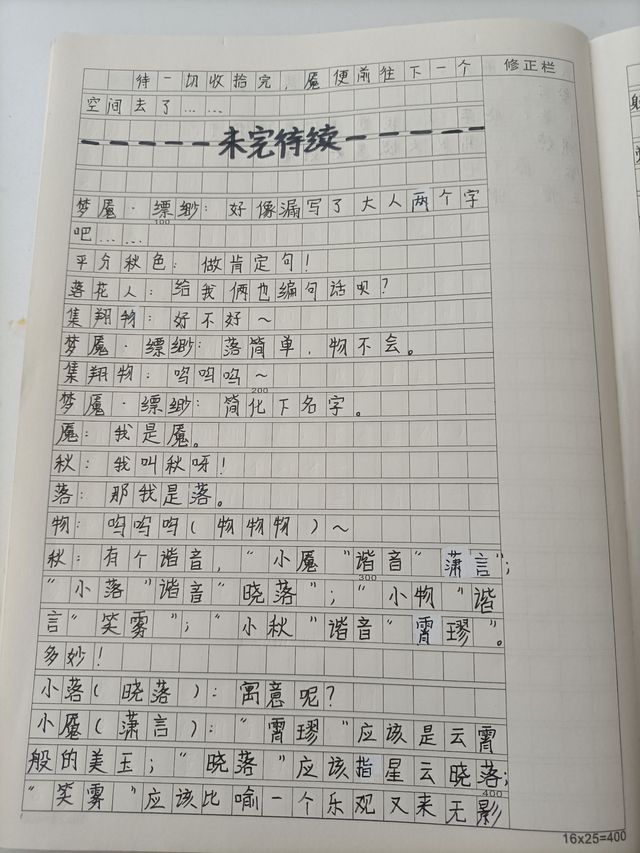 修正栏
待一切收拾完，魇便前往下一个
空间去了……
-----未完待续-----
梦魇·缥缈：好像漏写了大人两个字
100
吧……
平分秋色：做肯定句！
落花人：给我俩也编句话呗？
集翔物：好不好～
梦魇·缥缈：落简单，物不会。
集翔物：呜呜呜～
200
梦魇·缥缈：简化下名字。
魇：我是魇。
秋：我叫秋呀！
落：那我是落。
物：呜呜呜（物物物）～
秋：有个谐音，“小魇”谐音“潇言”；
300
“小落”谐音“晓落”；“小物”谐
言“笑雾”；“小秋”谐音“霄璆”。
多妙！
小落（晓落）：寓意呢？
小魇（潇言）：“霄璆”应该是云霄
般的美玉；“晓落”应该指星云晓落；
400
“笑雾”应该比喻一个乐观又来无影
16x25=400